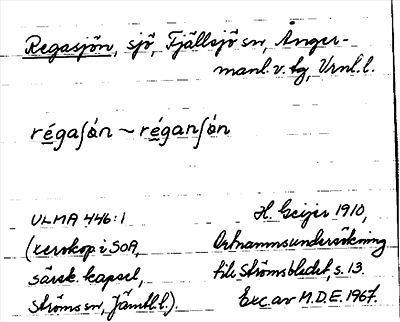 Regasjön, sjö, Fjällsjö sn, Ånger-
manl. v. tg, Vrnl. l.
régaʃȯn ~ réganʃȯn
ULMA 446:1
(xerokop i SOA,
särsk. kapsel,
Ströms sn, Jämtl. l.).
H. Geijer 1910,
Ortnamnsundersökning
till Strömsbladet, s. 13.
Exc. av M.D.E. 1967.